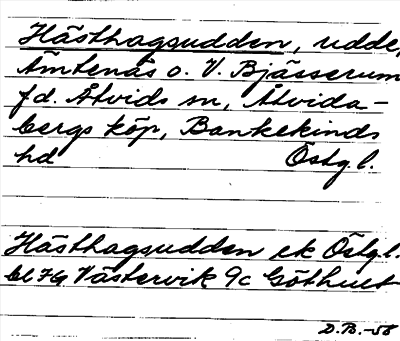 Hästhagsudden, udde,
Ämtenäs o. V. Bjässerum
fd. Åtvids sn, Åtvida-
bergs köp, Bankekinds
hd Östgl.
Hästhagsudden ek Östgl.
bl 7G Västervik 9c Göthult
D.B.-58